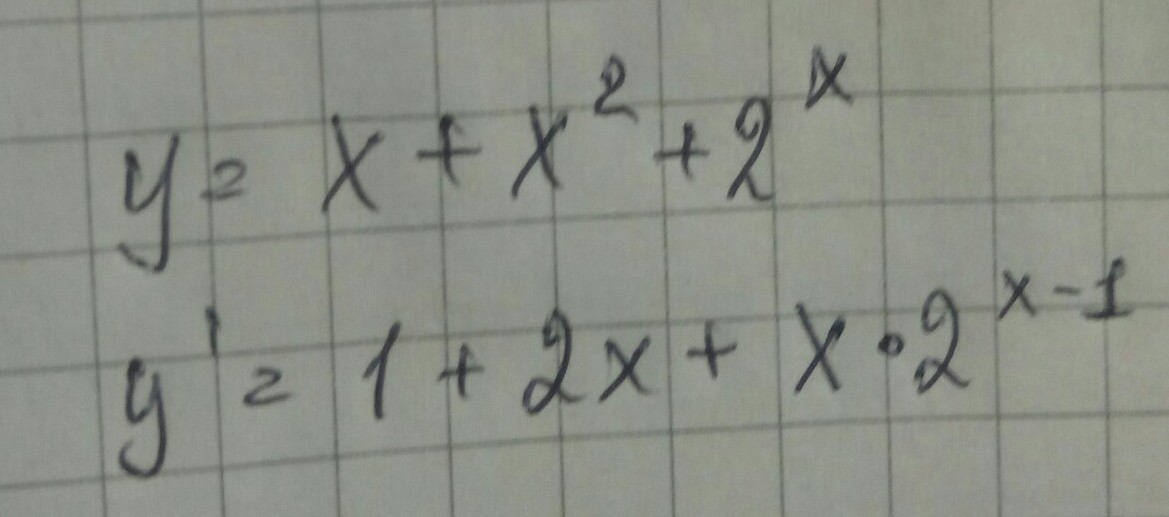 y = x + x² + 2ˣ
y' = 1 + 2x + x · 2ˣ⁻¹